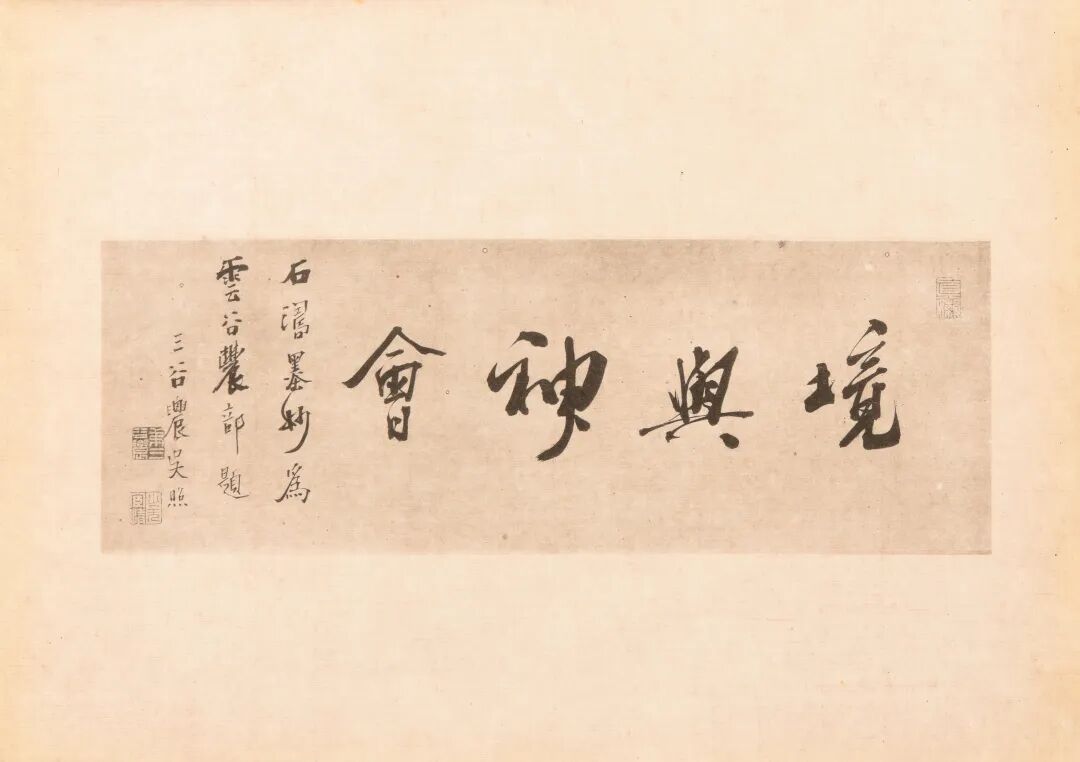 境與神會
石濤墨妙為
雲谷農部題
三谷農吳照